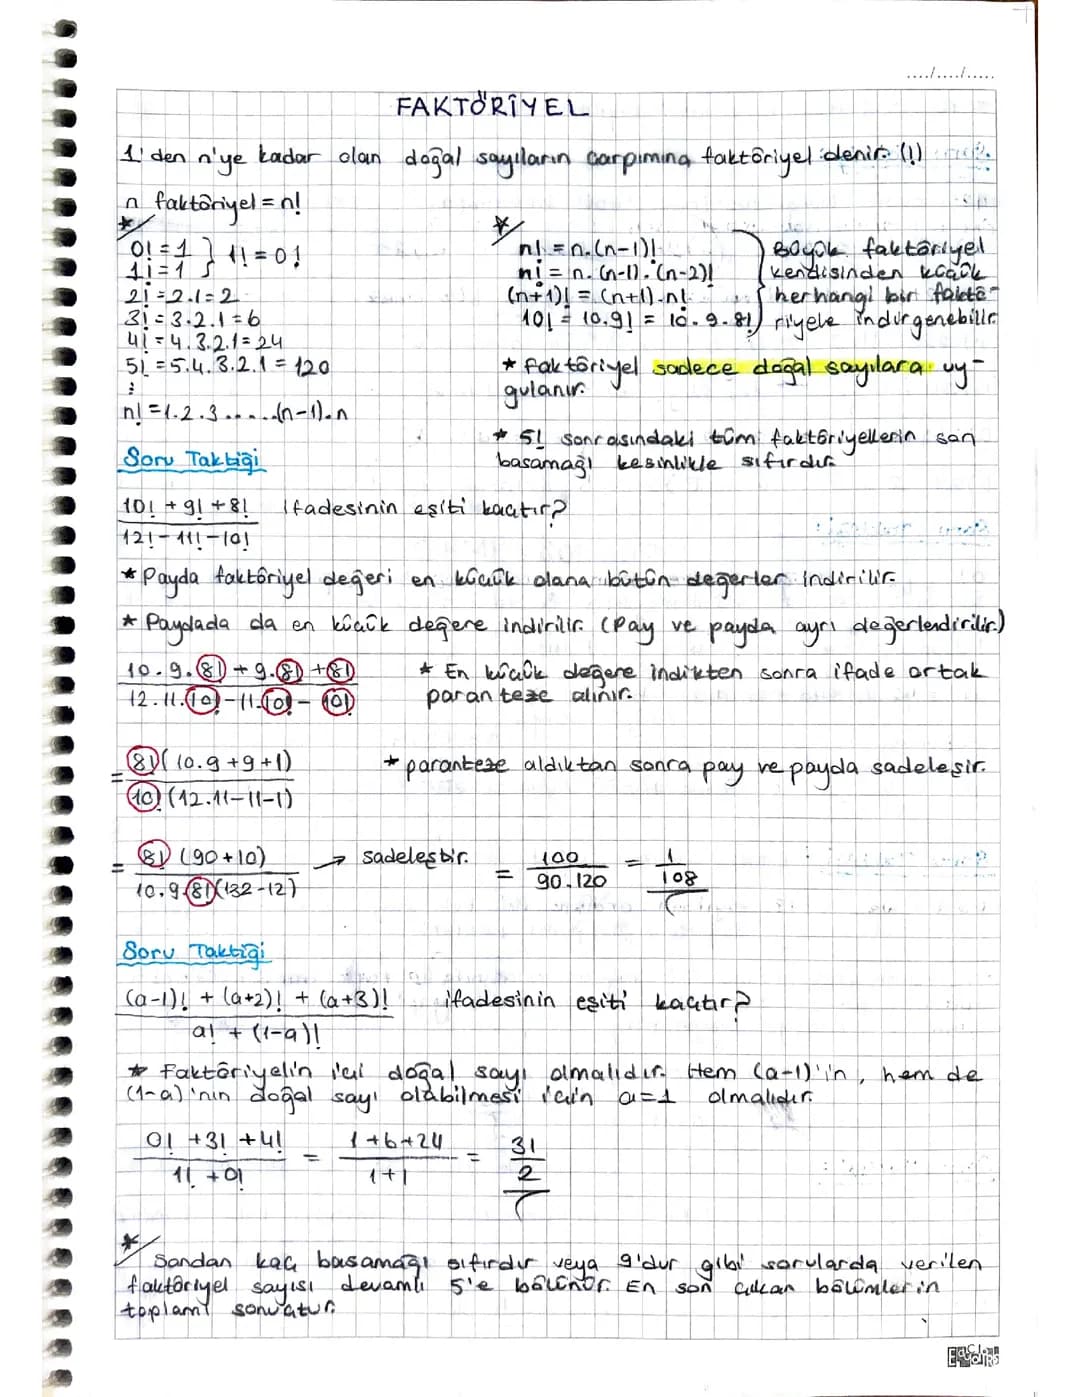 ..../..../.....
FAKTÖRİYEL
1'den n'ye kadar olan doğal sayıların çarpımına faktöriyel denir. (!)
n faktöriyel = n!
*
0! = 1 } 1! = 0!
1! = 1
2! = 2.1 = 2
3! = 3.2.1 = 6
4! = 4.3.2.1 = 24
5! = 5.4.3.2.1 = 120
⋮
n! = 1.2.3......(n-1).n
*
n! = n.(n-1)!
n! = n.(n-1).(n-2)!
(n+1)! = (n+1).n!
10! = 10.9! = 10.9.8!
Büyük faktöriyel
kendisinden küçük
herhangi bir faktö-
riyele indirgenebilir.
* Faktöriyel sadece doğal sayılara uy-
gulanır.
* 5! sonrasındaki tüm faktöriyellerin son
basamağı kesinlikle sıfırdır.
Soru Taktiği
10! + 9! + 8! ifadesinin eşiti kaçtır?
12! - 11! - 10!
* Payda faktöriyel değeri en küçük olana bütün değerler indirilir.
* Paydada da en küçük değere indirilir. (Pay ve payda ayrı değerlendirilir.)
10.9.8! + 9.8! + 8!
12.11.10! - 11.10! - 10!
* En küçük değere indikten sonra ifade ortak
paranteze alınır.
= 8!(10.9+9+1)
10!(12.11-11-1)
* paranteze aldıktan sonra pay ve payda sadeleşir.
= 8!(90+10) → sadeleştir. = 100 = 1
10.9.8!(132-12) 90.120 108
Soru Taktiği
(a-1)! + (a+2)! + (a+3)! ifadesinin eşiti kaçtır?
a! + (1-a)!
* Faktöriyelin içi doğal sayı olmalıdır. Hem (a-1)'in, hem de
(1-a)'nın doğal sayı olabilmesi için a=1 olmalıdır.
0! + 3! + 4! = 1+6+24 = 31
1! + 0! 1+1 2
*
Sondan kaç basamağı sıfırdır veya 9'dur gibi sorularda verilen
faktöriyel sayısı devamlı 5'e bölünür. En son çıkan bölümlerin
toplamı sonuçtur.